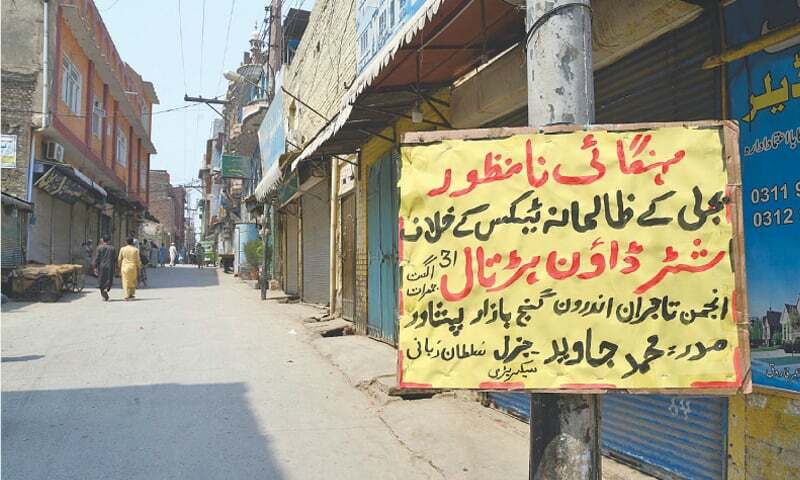 مہنگائی نامنظور
بجلی کے ظالمانہ ٹیکس کے خلاف
شٹر ڈاؤن ہڑتال 31 اگست جمعرات
انجمن تاجران اندرون گنج بازار پشاور
صدر: محمد جاوید - جنرل سیکریٹری سلطان ربانی
ڈیلر
0311 9
0312